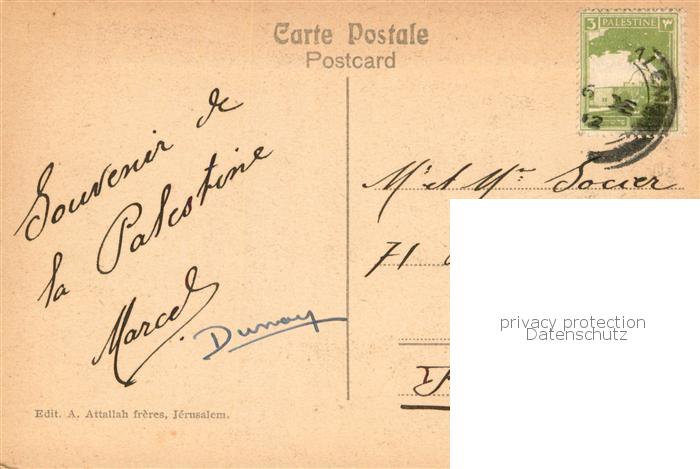 Carte Postale
Postcard
3 PALESTINE ٣
Souvenir de
la Palestine
Marcel
Dunoy
Mr et Mme Socier
71
Edit. A. Attallah frères, Jérusalem.
privacy protection
Datenschutz